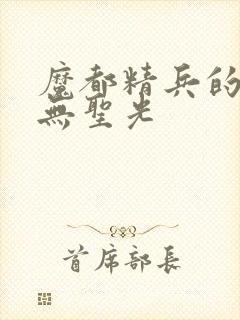 魔都精兵的
無聖光
首席部長